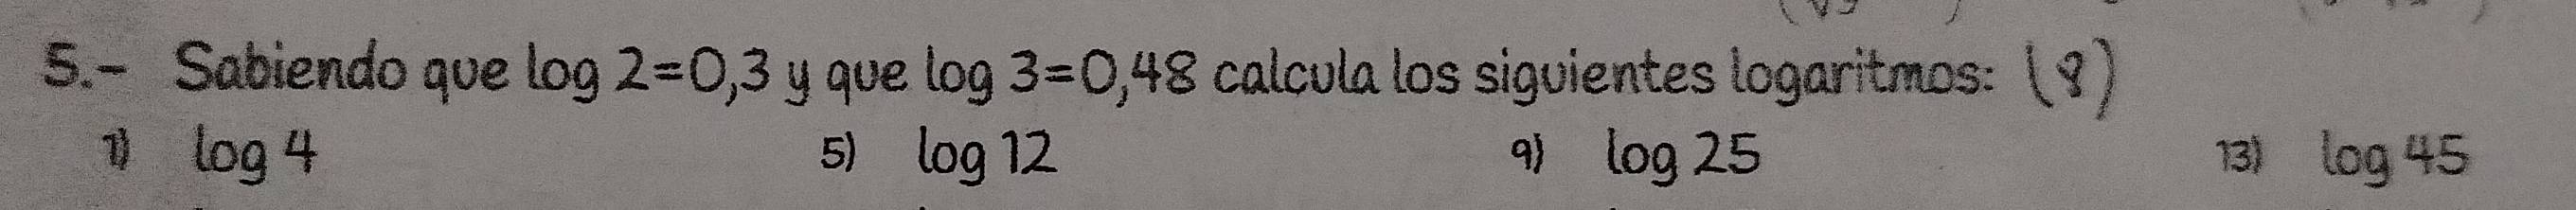 5.- Sabiendo que log 2=0,3 y que log 3=0,48 calcula los siguientes logaritmos: (8)
1) log 4 5) log 12 9) log 25 13) log 45